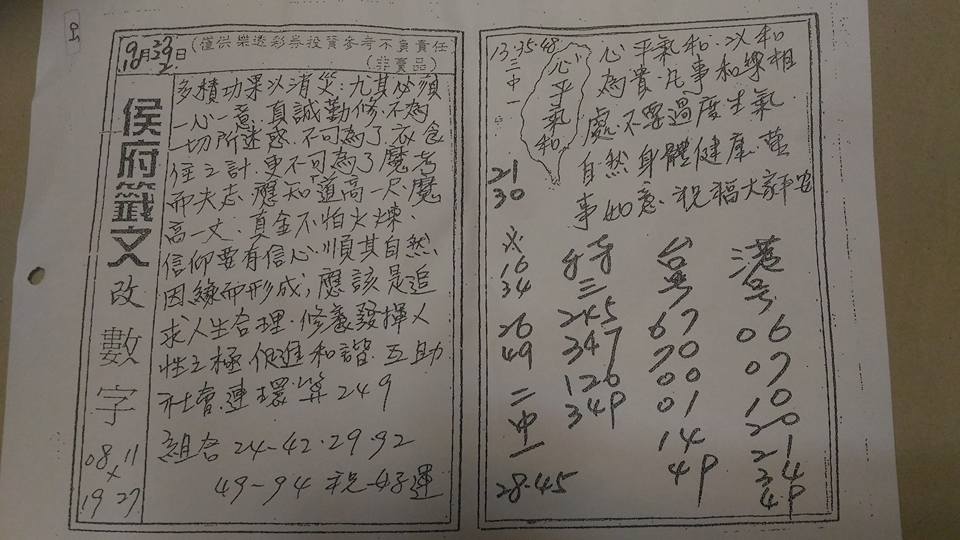 (僅供樂透彩券投資參考不負責任)
(非賣品)
侯府籤文
改數字
08 11
×
19 27
多積功果以消災.尤其必須
一心一意.真誠勤修.不為
一切所迷惑.不可為了衣食
住之計.更不可為了魔考
而失志.應知道高一尺.魔
高一丈.真金不怕火煉.
信仰要有信心.順其自然.
因緣而形成;應該是追
求人生合理.修養發揮人
性之極.促進和諧.互助
社會.連環算249
組合24-42.29.92
49-94 祝好運
13.35.48
三中一
心平氣和
心平氣和.以和
為貴.凡事和緣相
處.不要過度生氣
自然身體健康.萬
事如意.祝福大家平安
21
30
16
34
26
49
二中一
28.45
三
245
347
126
349
台号
67
70
00
01
14
49
港号
06
07
10
20
21
34
49